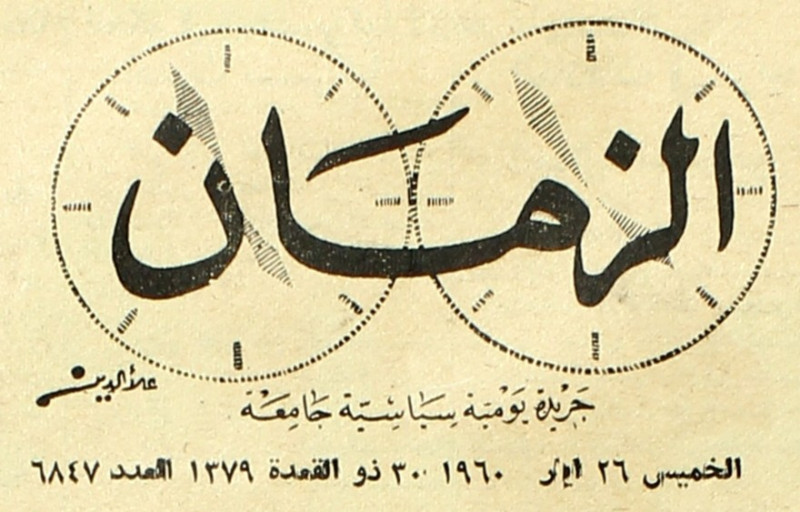 الزمان
علاءالدين
جَرِيْدة يَوْمِيَة سِيَاسِيَّة جَامِعَة
الخميس ٢٦ ايار ١٩٦٠ ٣٠ ذو القعدة ١٣٧٩ العدد ٦٨٤٧